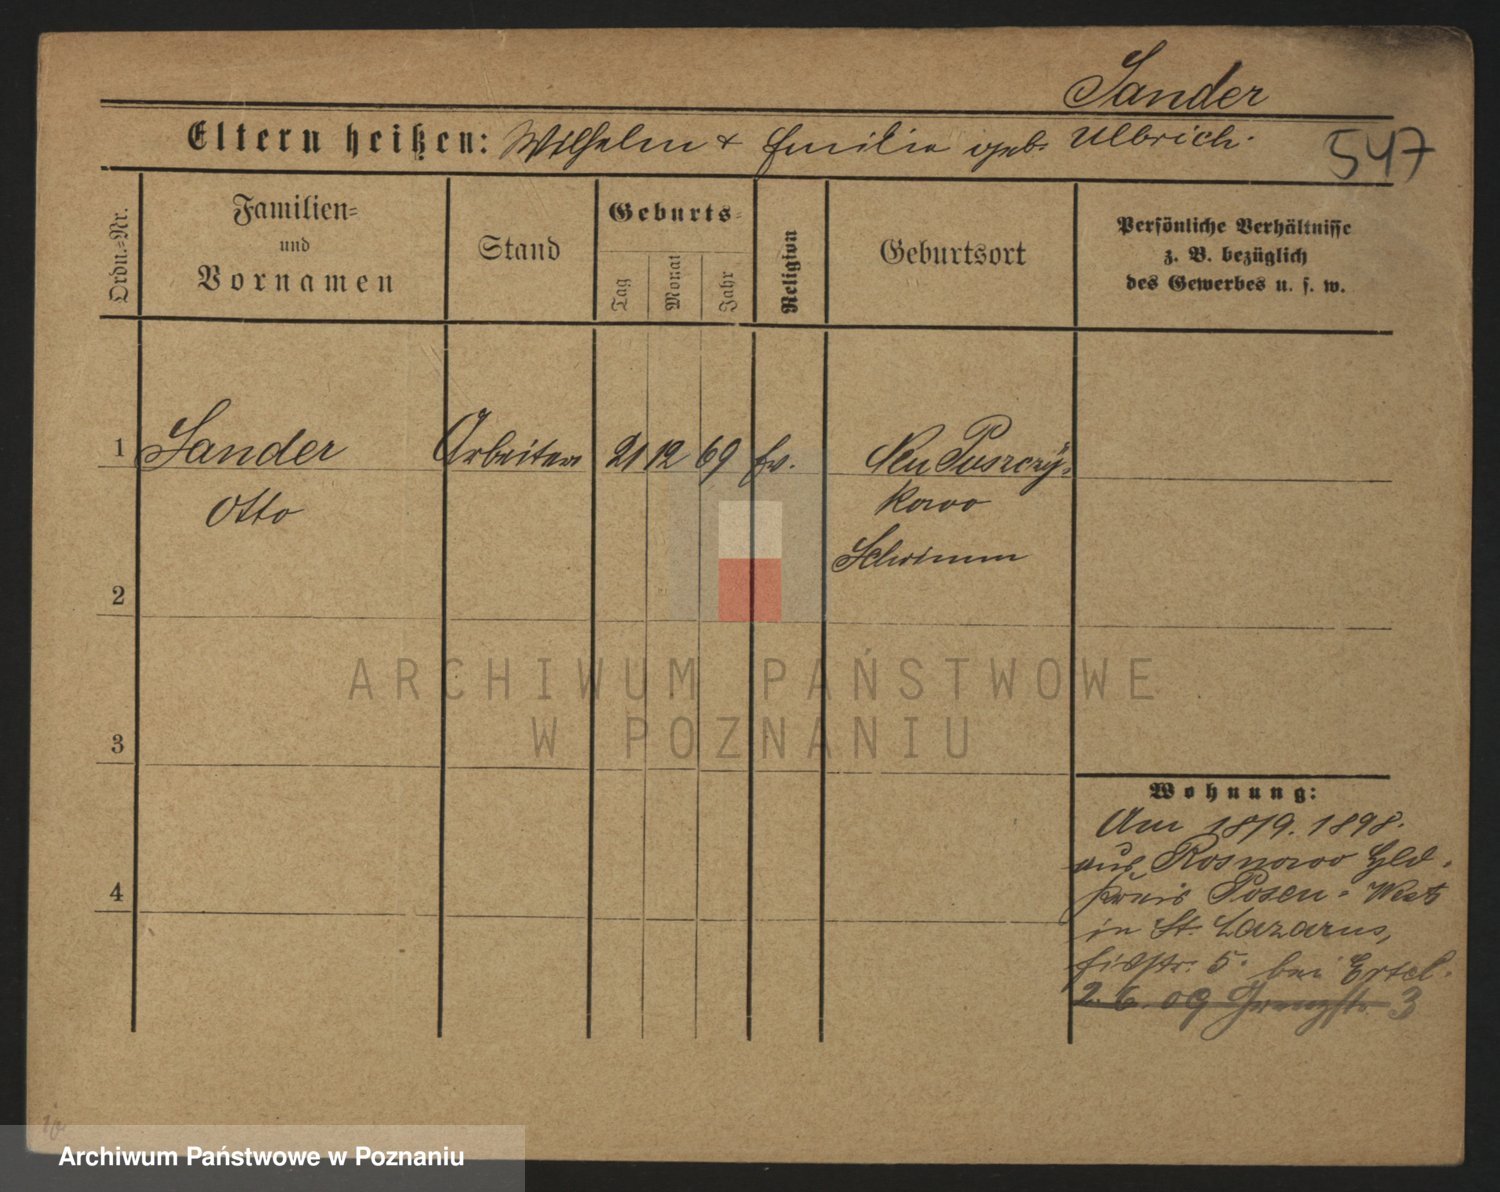 Sander
Eltern heißen: Wilhelm & Emilie geb. Ulbrich.
547
Ordn.-Nr.
Familien-
und
Vornamen
Stand
Geburts-
Tag
Monat
Jahr
Religion
Geburtsort
Persönliche Verhältnisse
z. B. bezüglich
des Gewerbes u. s. w.
1 Sander Arbeiter 21 12 69 ev. Neu Puszczy-
Otto kowo
Schrimm
2
3
4
ARCHIWUM PAŃSTWOWE
W POZNANIU
Wohnung:
Am 18/9. 1898.
aus Rosnowo Gld.
Kreis Posen-West
in St. Lazarus,
5. bei Ertel.
2.6.09 Grenzstr. 3
Archiwum Państwowe w Poznaniu